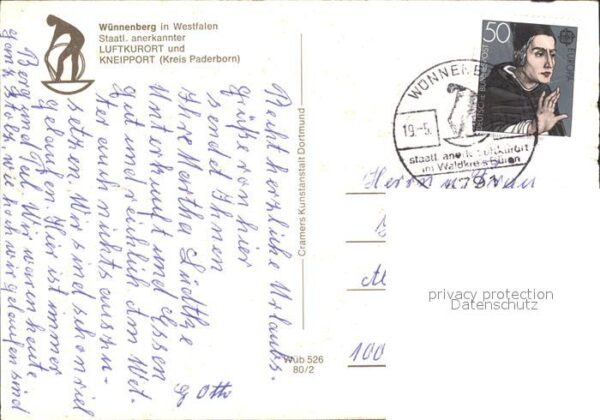 Wünnenberg in Westfalen
Staatl. anerkannter
LUFTKURORT und
KNEIPPORT (Kreis Paderborn)
Recht herzliche Urlaubs-
grüße von hier
sendet Ihnen
Ihre Martha
Unterkunft und Essen
gut und reichlich. Am Wet-
ter auch nichts auszu-
setzen. Wir sind schon viel
gelaufen. Hier ist immer
Berg und Tal. Wir waren heute
ganz stolz, wie hoch wir gelaufen sind
Otto
Cramers Kunstanstalt Dortmund
Wüb 526
80/2
50
DEUTSCHE BUNDESPOST
EUROPA
WÜNNENB
19.-5.
staatl. anerk. Luftkurort
im Waldkreis Büren
Herrn u. Frau
100
privacy protection
Datenschutz